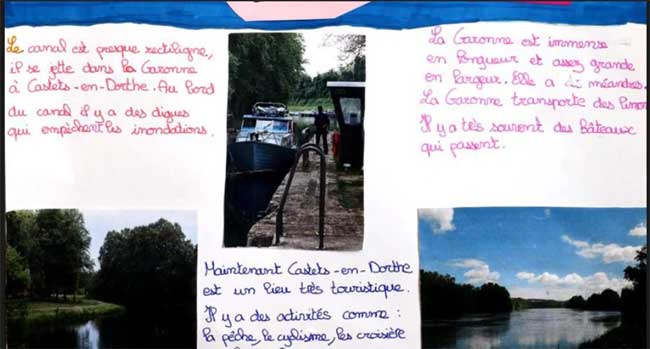 Le canal est presque rectiligne,
il se jette dans la Garonne
à Castets-en-Dorthe. Au bord
du canal il y a des digues
qui empêchent les inondations.
La Garonne est immense
en longueur et assez grande
en largeur. Elle a méandres.
La Garonne transporte des
Il y a très souvent des Bâteaux
qui passent.
Maintenant Castets-en-Dorthe
est un lieu très touristique.
Il y a des activités comme :
la pêche, le cyclisme, les croisière